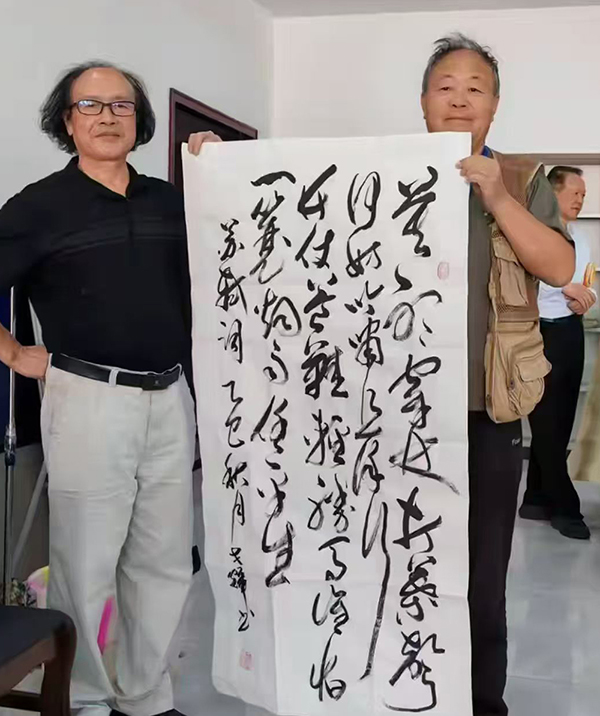 莫听穿林打叶声
何妨吟啸且徐行
竹杖芒鞋轻胜马谁怕
一蓑烟雨任平生
苏轼词 乙巳秋月 书